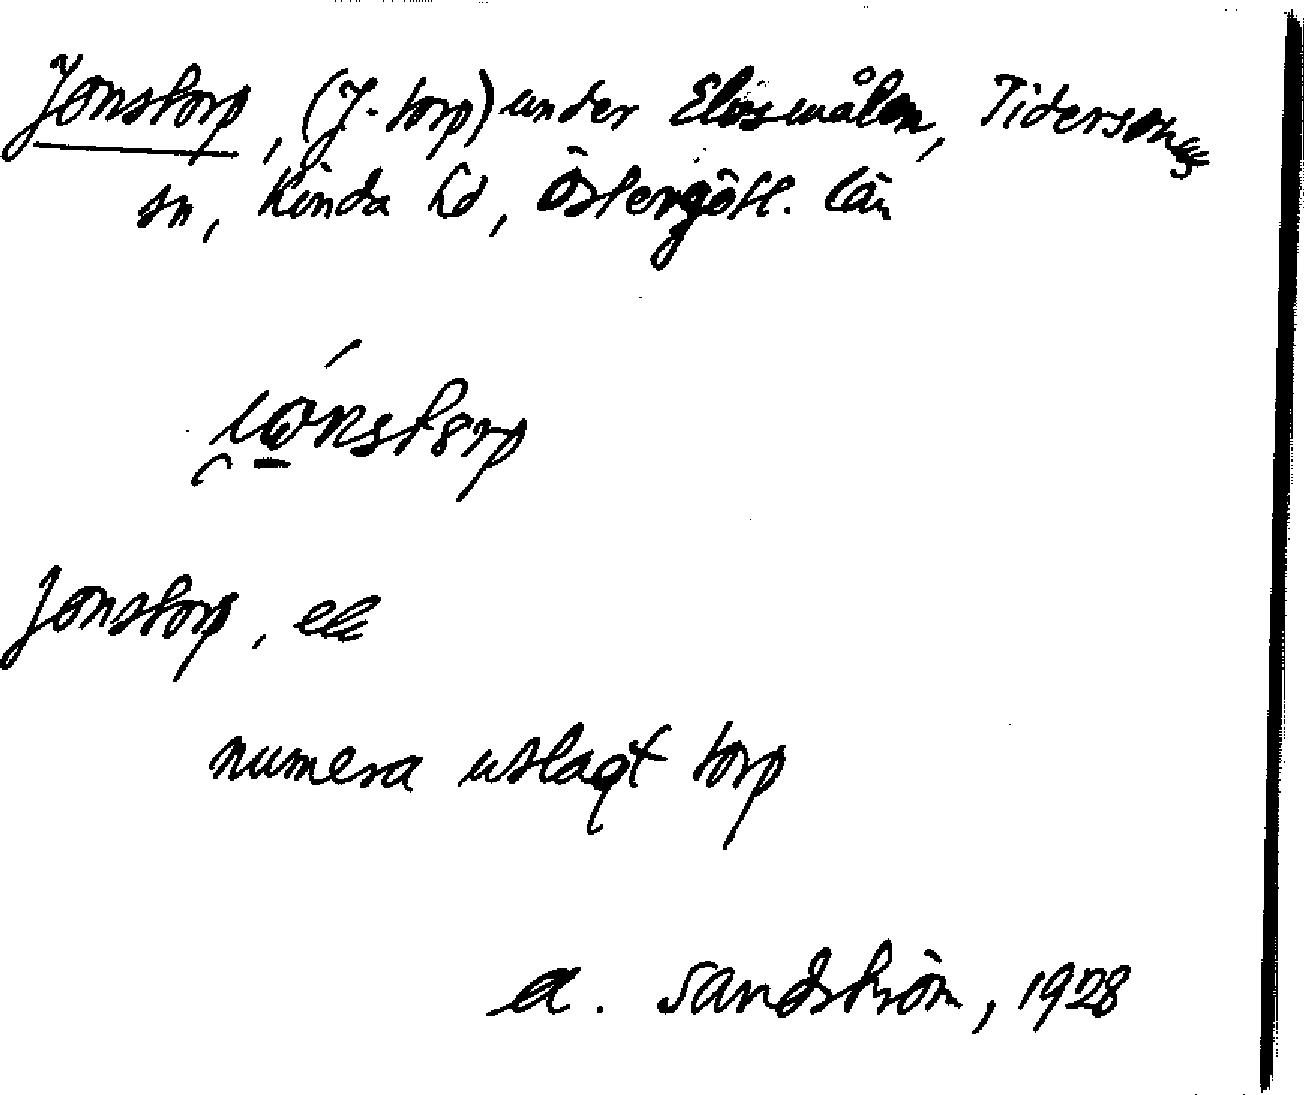 Jonstorp, (J-torp) under Elvsmålen, Tidersrums
sn, Kinda hd, Östergötl. län
Jonstorp,
numera utlagt torp
A. Sandström, 1928